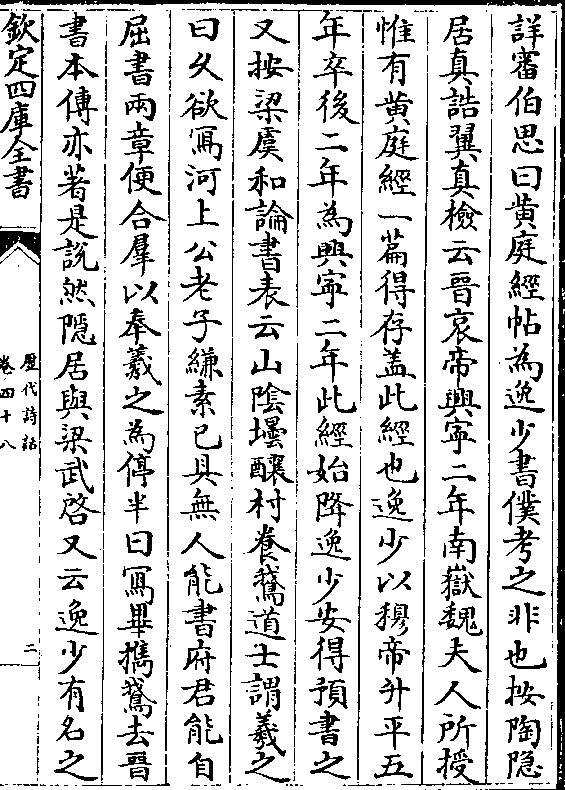 詳審伯思曰黄庭經帖為逸少書僕考之非也按陶隐
居真誥翼真檢云晉哀帝興寧二年南嶽魏夫人所授
惟有黄庭經一篇得存盖此經也逸少以穆帝升平五
年卒後二年為興寧二年此經始降逸少安得預書之
又按梁虞和論書表云山陰壜釀村養鵞道士謂羲之
曰久欲冩河上公老子縑素已具無人能書府君能自
屈書兩章便合羣以奉羲之為停半日冩畢攜鵞去晉
書本傳亦著是說然隠居與梁武啓又云逸少有名之
欽定四庫全書
歷代詩話
卷四十八
二